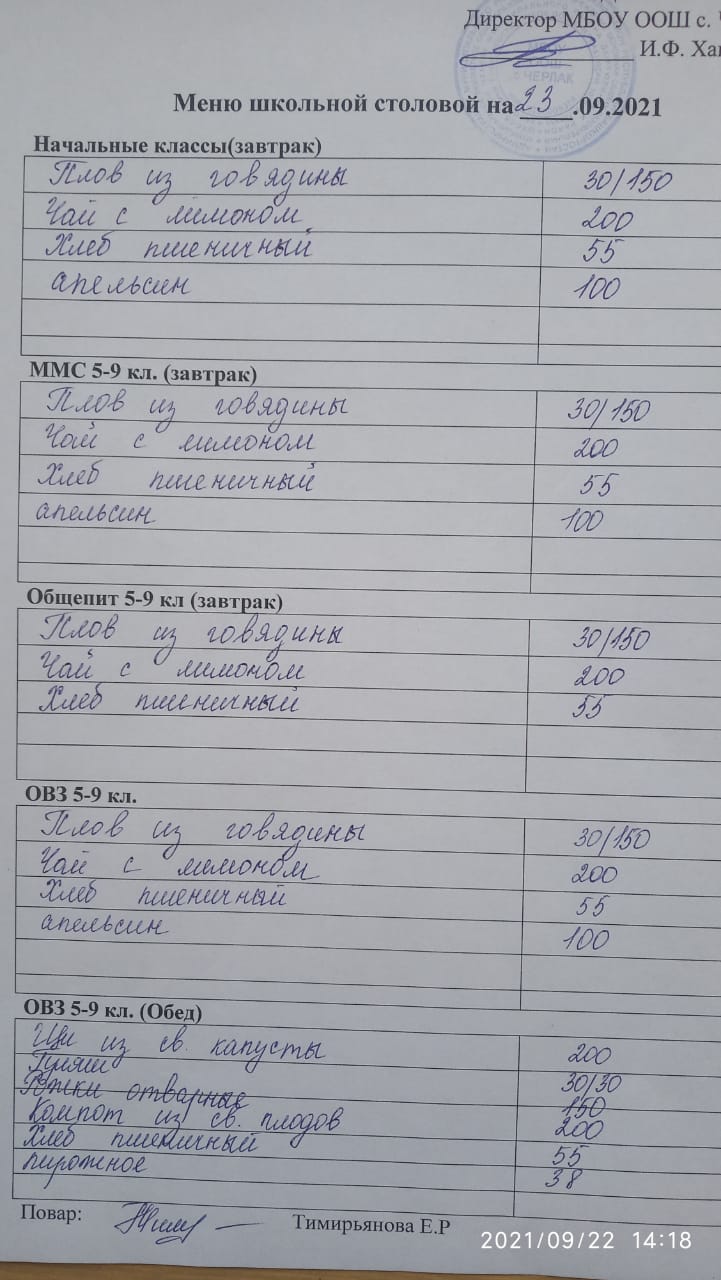 Директор МБОУ ООШ с.
И.Ф. Ха
ЧЕРЛАК
Меню школьной столовой на 23.09.2021
Начальные классы(завтрак)
Плов из говядины 30/150
Чай с лимоном 200
Хлеб пшеничный 55
апельсин 100
ММС 5-9 кл. (завтрак)
Плов из говядины 30/150
Чай с лимоном 200
Хлеб пшеничный 55
апельсин 100
Общепит 5-9 кл (завтрак)
Плов из говядины 30/150
Чай с лимоном 200
Хлеб пшеничный 55
ОВЗ 5-9 кл.
Плов из говядины 30/150
Чай с лимоном 200
Хлеб пшеничный 55
апельсин 100
ОВЗ 5-9 кл. (Обед)
Щи из св. капусты 200
Гуляш 30/30
Рожки отварные 150
Компот из св. плодов 200
Хлеб пшеничный 55
пирожное 38
Повар: Тимирьянова Е.Р
2021/09/22 14:18